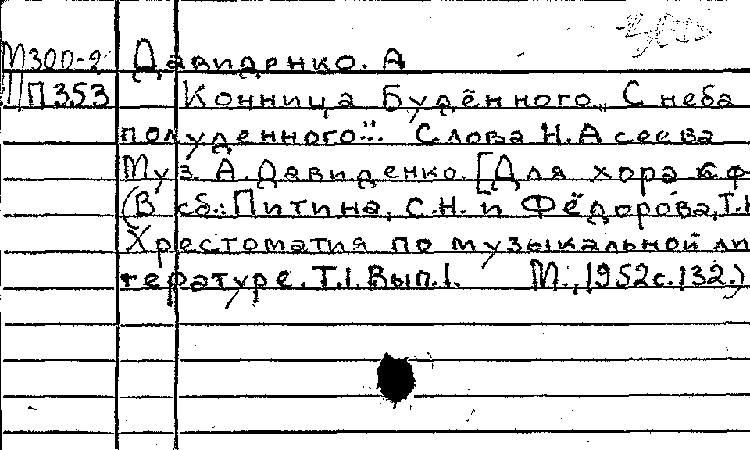 М300-2 Давиденко. А
П353 Конница Будённого „С неба
полуденного..." Слова Н. Асеева
Муз. А. Давиденко. [Для хора с ф
(В сб.: Питина, С.Н. и Фёдорова, Т.Н
Хрестоматия по музыкальной ли
тературе. Т.1. Вып.1. М., 1952 с.132.)